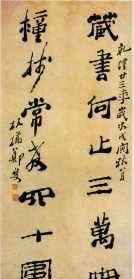 乾隆廿三年歲次戊寅秋八月
藏書何止三萬
種樹常教四十圍
板橋鄭燮